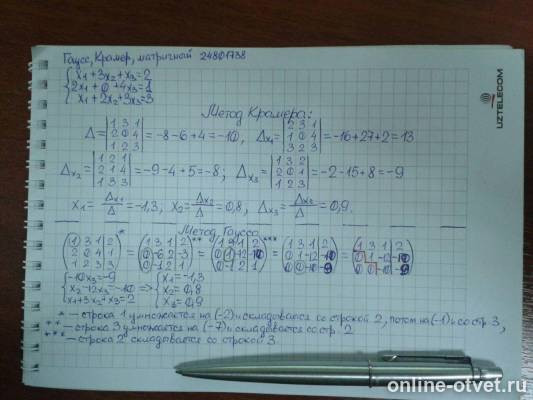 Гаусс, Крамер, матричный 24801738
x₁+3x₂+x₃=2
2x₁+0+4x₃=1
x₁+2x₂+3x₃=3
Метод Крамера:
Δ= |1 3 1; 2 0 4; 1 2 3| =-8-6+4=-10, Δx₁= |2 3 1; 1 0 4; 3 2 3| =-16+27+2=13
Δx₂= |1 2 1; 2 1 4; 1 3 3| =-9-4+5=-8; Δx₃= |1 3 2; 2 0 1; 1 2 3| =-2-15+8=-9
x₁= Δx₁/Δ =-1,3, x₂= Δx₂/Δ =0,8, Δx₃= Δx₃/Δ =0,9.
Метод Гаусса
(1 3 1|2; 2 0 4|1; 1 2 3|3)* = (1 3 1|2; 0 -6 2|-3; 0 -1 2|1)** = (1 3 1|2; 0 1 -12|-10; 0 -1 2|1)*** = (1 3 1|2; 0 1 -12|-10; 0 0 -10|-9) = (1 3 1|2; 0 1 -12|-10; 0 0 -10|-9)
-10x₃=-9 x₁=-1,3
x₂-12x₃=-10 => x₂=0,8
x₁+3x₂+x₃=2 x₃=0,9
* — строка 1 умножается на (-2) и складывается со строкой 2, потом на (-1) и со стр 3,
** — строка 3 умножается на (-7) и складывается со стр. 2
*** — строка 2 складывается со строкой 3.
UZTELECOM
online-otvet.ru